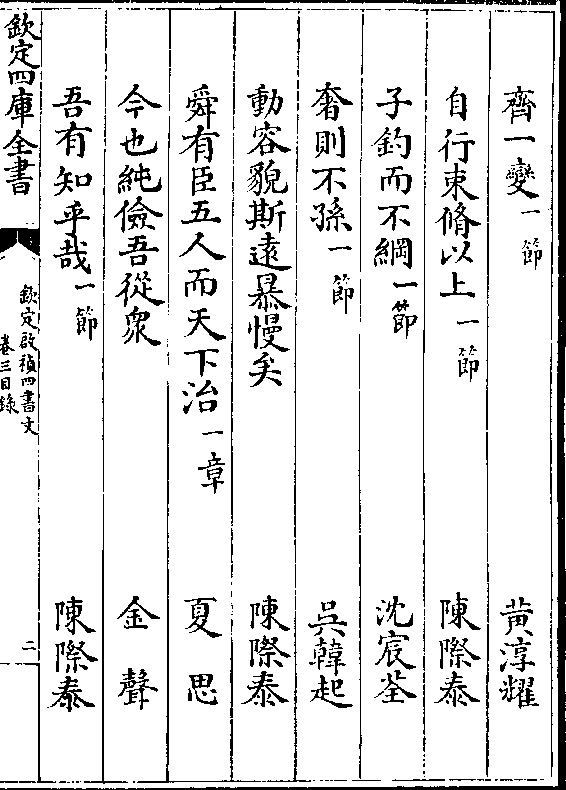 齊一變一節　黃淳耀
自行束脩以上一節　陳際泰
子釣而不綱一節　沈宸荃
奢則不孫一節　吳韓起
動容貌斯遠暴慢矣　陳際泰
舜有臣五人而天下治一章　夏思
今也純儉吾從衆　金聲
吾有知乎哉一節　陳際泰
欽定四庫全書
欽定啟禎四書文
卷三目錄
二